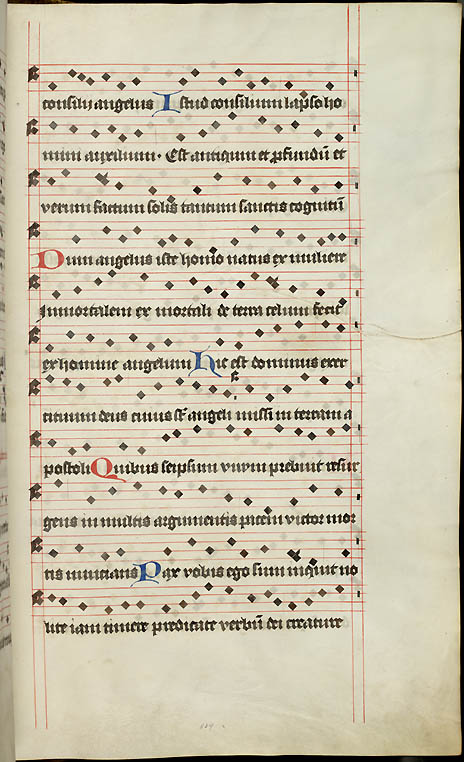 consilii angelus Istud consilium lapso ho
mini auxilium. Est antiquum et p̱fundū et
verum factum solis tantum sanctis cognitū
Dum angelus iste homo natus ex muliere
Inmortalem ex mortali de terra celum fecit
ex homine angelum Hic est dominus exer
cituum deus cuius sūt angeli missi in terram a
postoli Quibus seipsum vivum prebuit resur
gens in multis argumentis pacem victor mor
tis nuncians Pax vobis ego sum inquit no
lite iam timere predicate verbū dei creature